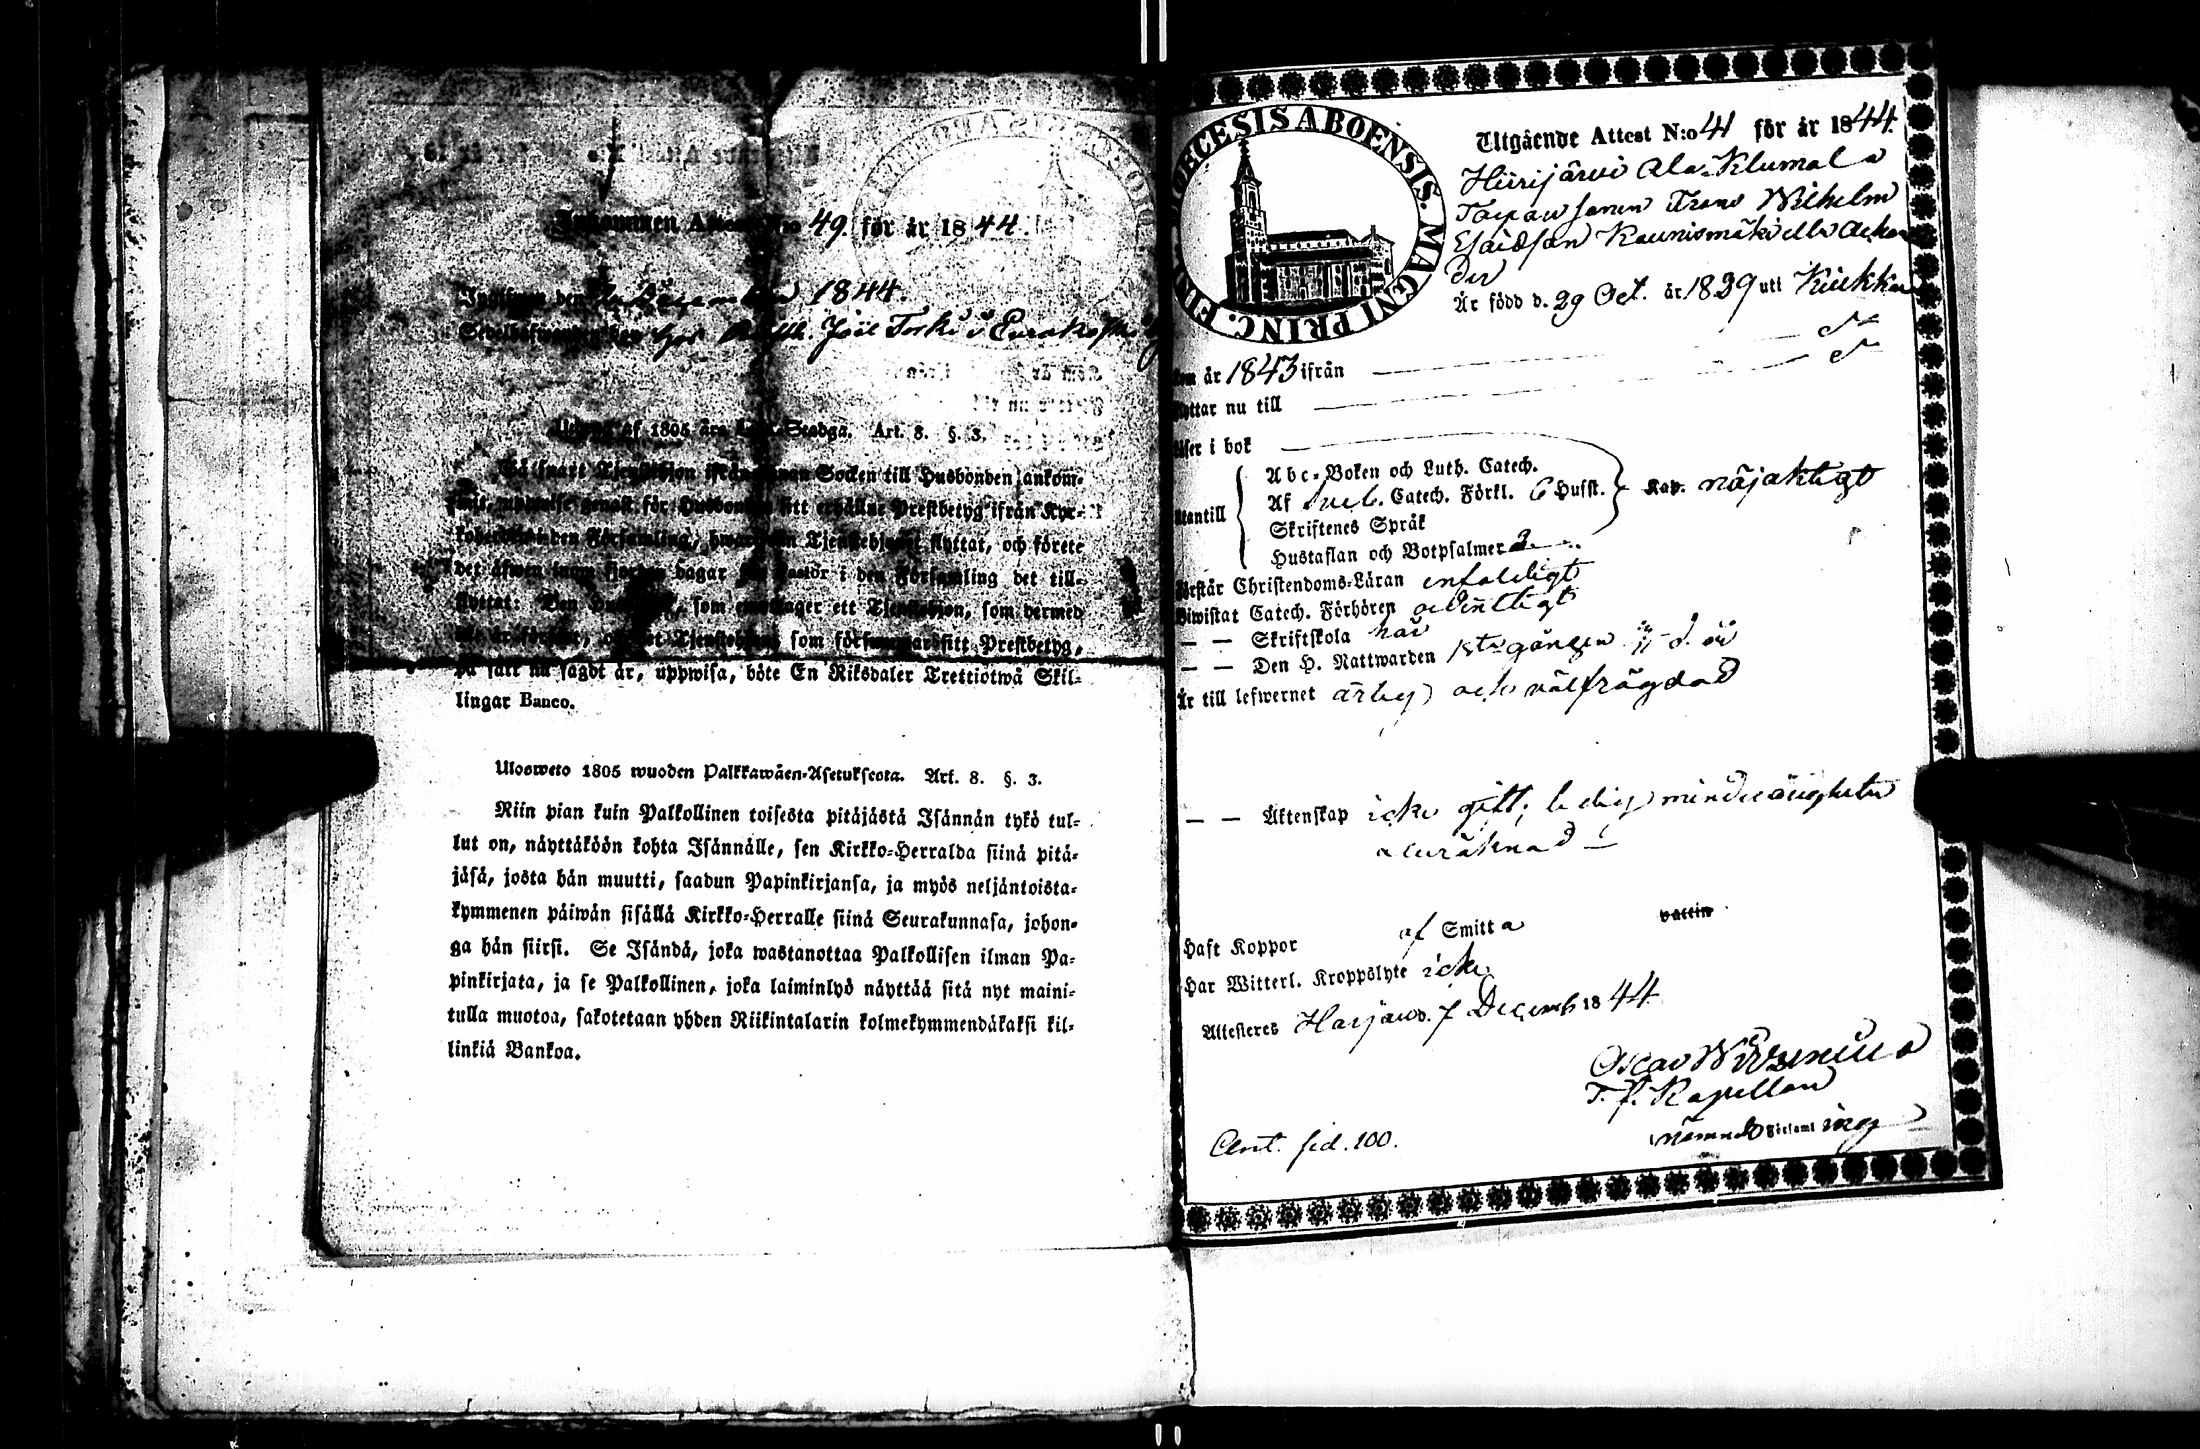 Inkommen Attest N:o 49 för år 1844.
Inlöstes den December 1844.
Sedelhafwanden Joel Torki i Euraåminne
Utdrag af 1805 års Lego-Stadga. Art. 8. §. 3.
Så snart Tjenstehjon ifrån annan Socken till Husbonden ankom-
mit, uppwise genast för Husbonden sitt erhållne Prestbetyg ifrån Kyr-
koherden i den Församling, hwarifrån Tjenstehjonet flyttat, och förete
det äfwen inom fjorton dagar för Pastor i den Församling det till-
flyttat: Den Husbonde, som emottager ett Tjenstehjon, som dermed
och det Tjenstehjon, som försummar sitt Prestbetyg,
på sätt nu sagdt är, uppwisa, böte En Riksdaler Trettiotwå Skil-
lingar Banco.
Ulosweto 1805 wuoden Palkkawäen-Asetuksesta. Art. 8. §. 3.
Niin pian kuin Palkollinen toisesta pitäjästä Isännän tykö tul-
lut on, näyttäköön kohta Isännälle, sen Kirkko-Herralda siinä pitä-
jäsä, josta hän muutti, saadun Papinkirjansa, ja myös neljäntoista-
kymmenen päiwän sisällä Kirkko-Herralle siinä Seurakunnasa, johon-
ga hän siirsi. Se Isändä, joka wastanottaa Palkollisen ilman Pa-
pinkirjata, ja se Palkollinen, joka laiminlyö näyttää sitä nyt maini-
tulla muotoa, sakotetaan yhden Riikintalarin kolmekymmendäkaksi kil-
linkiä Bankoa.
DIOECESIS ABOENSIS. MAGNI PRINC. FINL.
Utgående Attest N:o 41 för år 1844.
Hiirijärvi Ala-Klumala
Frans Wilhelm
Esaidson Kaunismäki
Är född d. 29 Oct. år 1829 uti Kiukkais
Kom år 1843 ifrån
Flyttar nu till
Läser i bok
Utantill
Abc-Boken och Luth. Catech.
Af Sveb. Catech. Förkl. 6 Hufst. Kap. nöjaktigt
Skriftenes Språk
Hustaflan och Botpsalmer 2
Förstår Christendoms-Läran enfaldigt
Biwistat Catech. Förhören ordentligt
— — Skriftskola här
— — Den H. Nattwarden 1sta gången
Är till lefwernet ärlig och välfrägdad
— — Äktenskap icke gift; ledig minderårigheten
oberäknad
Haft Koppor af Smitta
Har Witterl. Kroppslyte icke
Attesteres Harjaw. 7 Decemb 1844
Oscar Wirzenius
T. f. Kapellan
nämnde Församling
Cent. sid. 100.